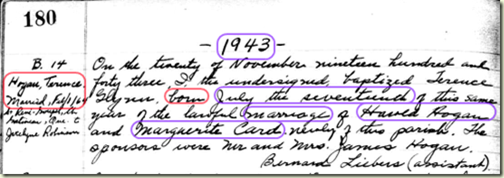 180
- 1943 -
B. 14
Hogan, Terence
Married, Feb/1/69
St. Rene-Goupil, Ch.
Gatineau, Que. C
Jocelyne Robinson
On the twenty of November nineteen hundred and
forty three I, the undersigned, baptized Terence
Glynn born July the seventeind of this same
year of the lawful marriage of Haved Hogan
and Marguerite Card newly of this parish. The
sponsors were Mr and Mrs. James Hogan.
Bernard Liebers (assistant).